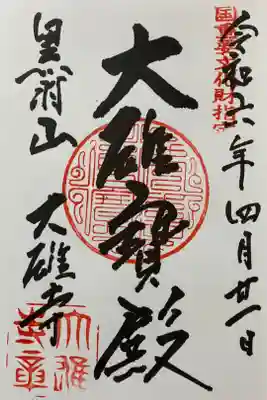 国重要文化財指定
令和六年四月廿一日
大雄寳殿
黒羽山 大雄寺